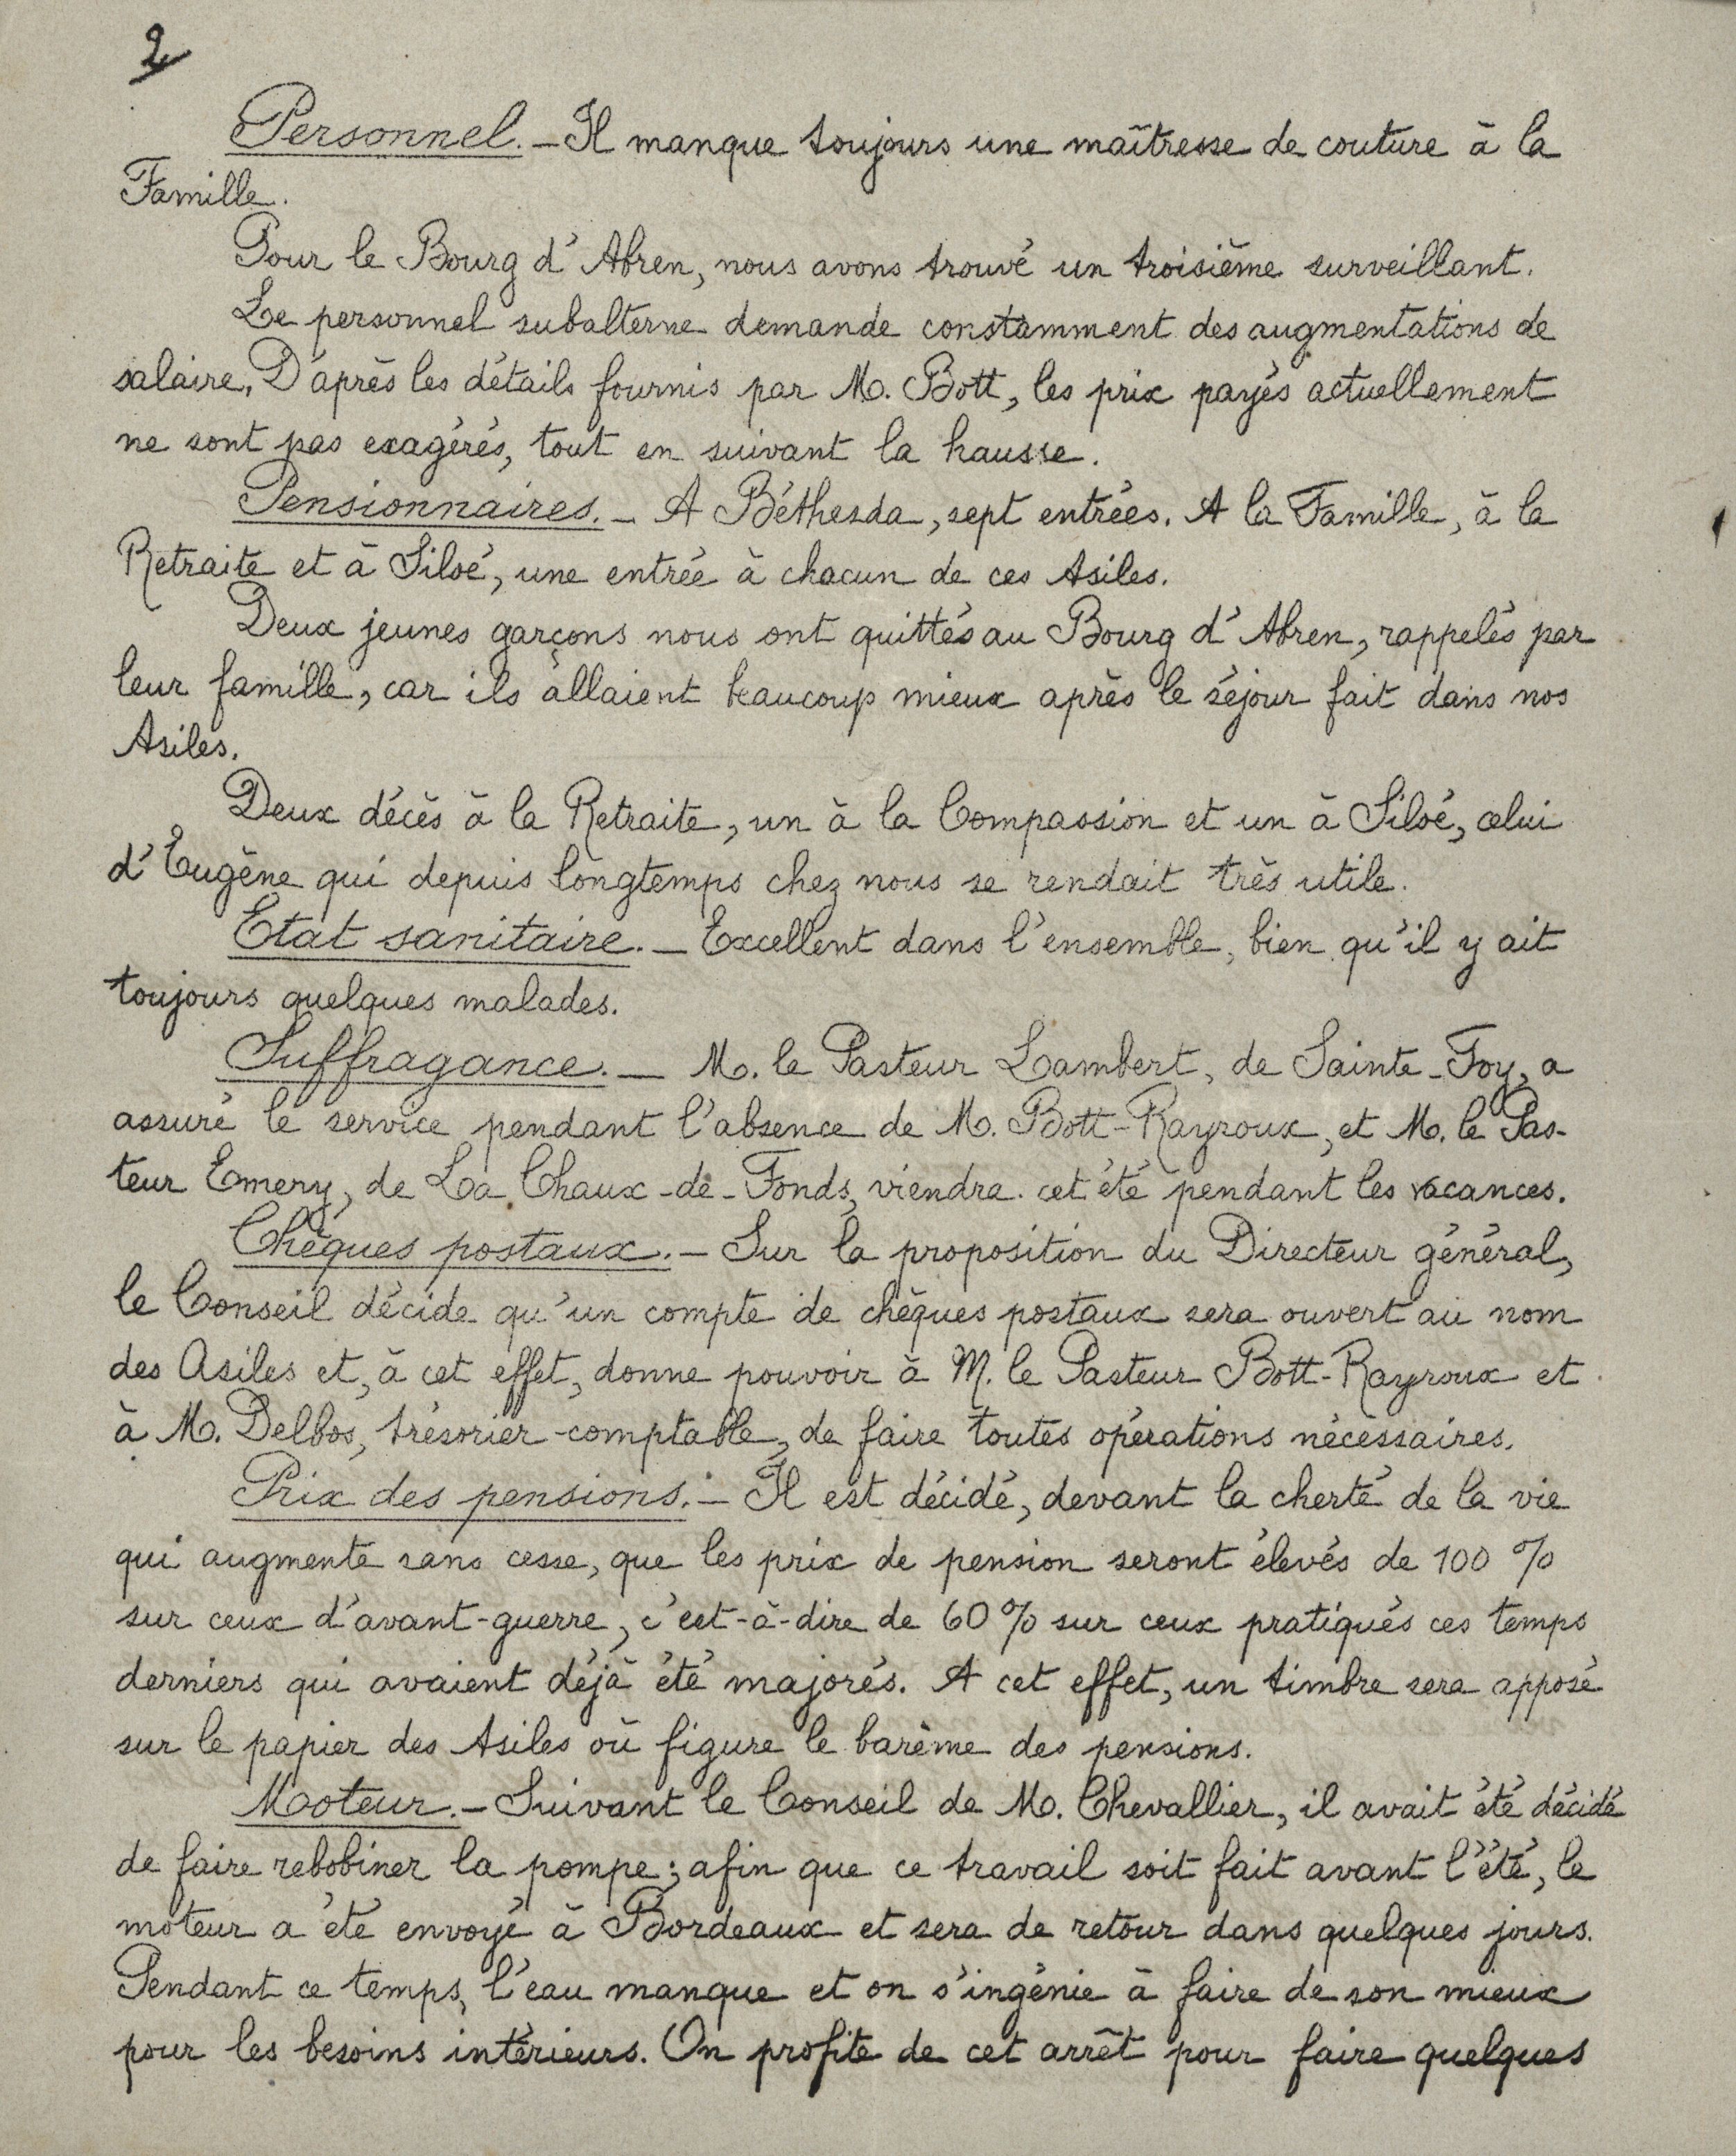 2
Personnel. — Il manque toujours une maîtresse de couture à la
Famille.
Pour le Bourg d'Abren, nous avons trouvé un troisième surveillant.
Le personnel subalterne demande constamment des augmentations de
salaire. D'après les détails fournis par M. Bott, les prix payés actuellement
ne sont pas exagérés, tout en suivant la hausse.
Pensionnaires. — A Béthesda, sept entrées. A la Famille, à la
Retraite et à Siloé, une entrée à chacun de ces Asiles.
Deux jeunes garçons nous ont quittés au Bourg d'Abren, rappelés par
leur famille, car ils allaient beaucoup mieux après le séjour fait dans nos
Asiles.
Deux décès à la Retraite, un à la Compassion et un à Siloé, celui
d'Eugène qui depuis longtemps chez nous se rendait très utile.
Etat sanitaire. — Excellent dans l'ensemble, bien qu'il y ait
toujours quelques malades.
Suffragance. — M. le Pasteur Lambert, de Sainte-Foy, a
assuré le service pendant l'absence de M. Bott-Rayroux, et M. le Pas-
teur Emery, de La Chaux-de-Fonds, viendra cet été pendant les vacances.
Chèques postaux. — Sur la proposition du Directeur général,
le Conseil décide qu'un compte de chèques postaux sera ouvert au nom
des Asiles et, à cet effet, donne pouvoir à M. le Pasteur Bott-Rayroux et
à M. Delbos, trésorier-comptable, de faire toutes opérations nécessaires.
Prix des pensions. — Il est décidé, devant la cherté de la vie
qui augmente sans cesse, que les prix de pension seront élevés de 100 %
sur ceux d'avant-guerre, c'est-à-dire de 60 % sur ceux pratiqués ces temps
derniers qui avaient déjà été majorés. A cet effet, un timbre sera apposé
sur le papier des Asiles où figure le barème des pensions.
Moteur. — Suivant le Conseil de M. Chevallier, il avait été décidé
de faire rebobiner la pompe ; afin que ce travail soit fait avant l'été, le
moteur a été envoyé à Bordeaux et sera de retour dans quelques jours.
Pendant ce temps, l'eau manque et on s'ingénie à faire de son mieux
pour les besoins intérieurs. On profite de cet arrêt pour faire quelques